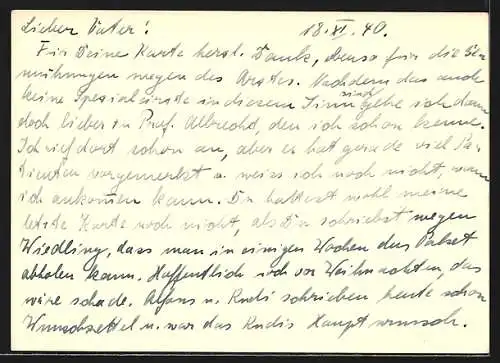 Lieber Vater! 18.XI.40.
Für Deine Karte herzl. Dank, ebenso für die Be-
mühungen wegen des Arztes. Nachdem das auch
keine Spezialärzte in diesem Sinn sind gehe ich dann
doch lieber zu Prof. Albrecht, den ich schon kenne.
Ich rief dort schon an, aber er hat gerade viel Pa-
tienten vorgemerkt u. weiss ich noch nicht, wann
ich ankommen kann. Du hattest wohl meine
letzte Karte noch nicht, als Du schriebst wegen
Wiedling, dass man in einigen Wochen das Paket
abholen kann. Hoffentlich noch vor Weihnachten, das
wäre schade. Alfons u. Rudi schrieben heute schon
Wunschzettel u. war das Rudis Hauptwunsch.